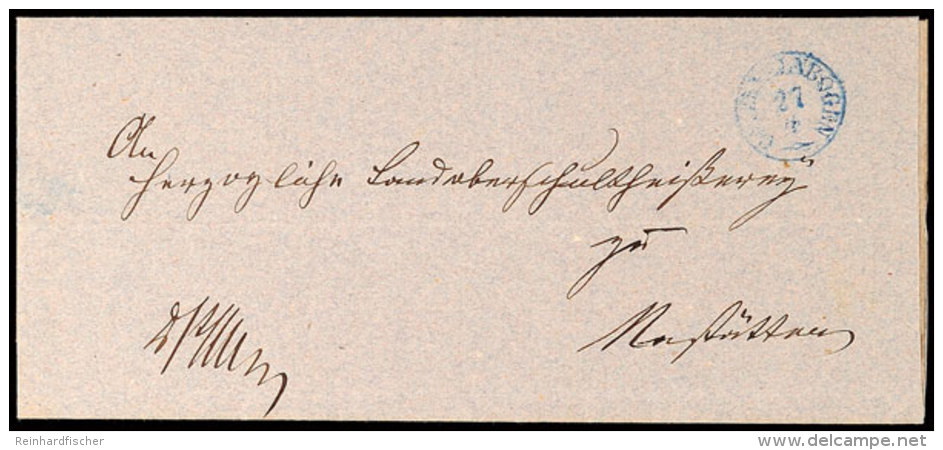 27
An
Herzogliche Landoberschultheißerey
zu
Nastätten
Reinhardfischer
delcampe.net